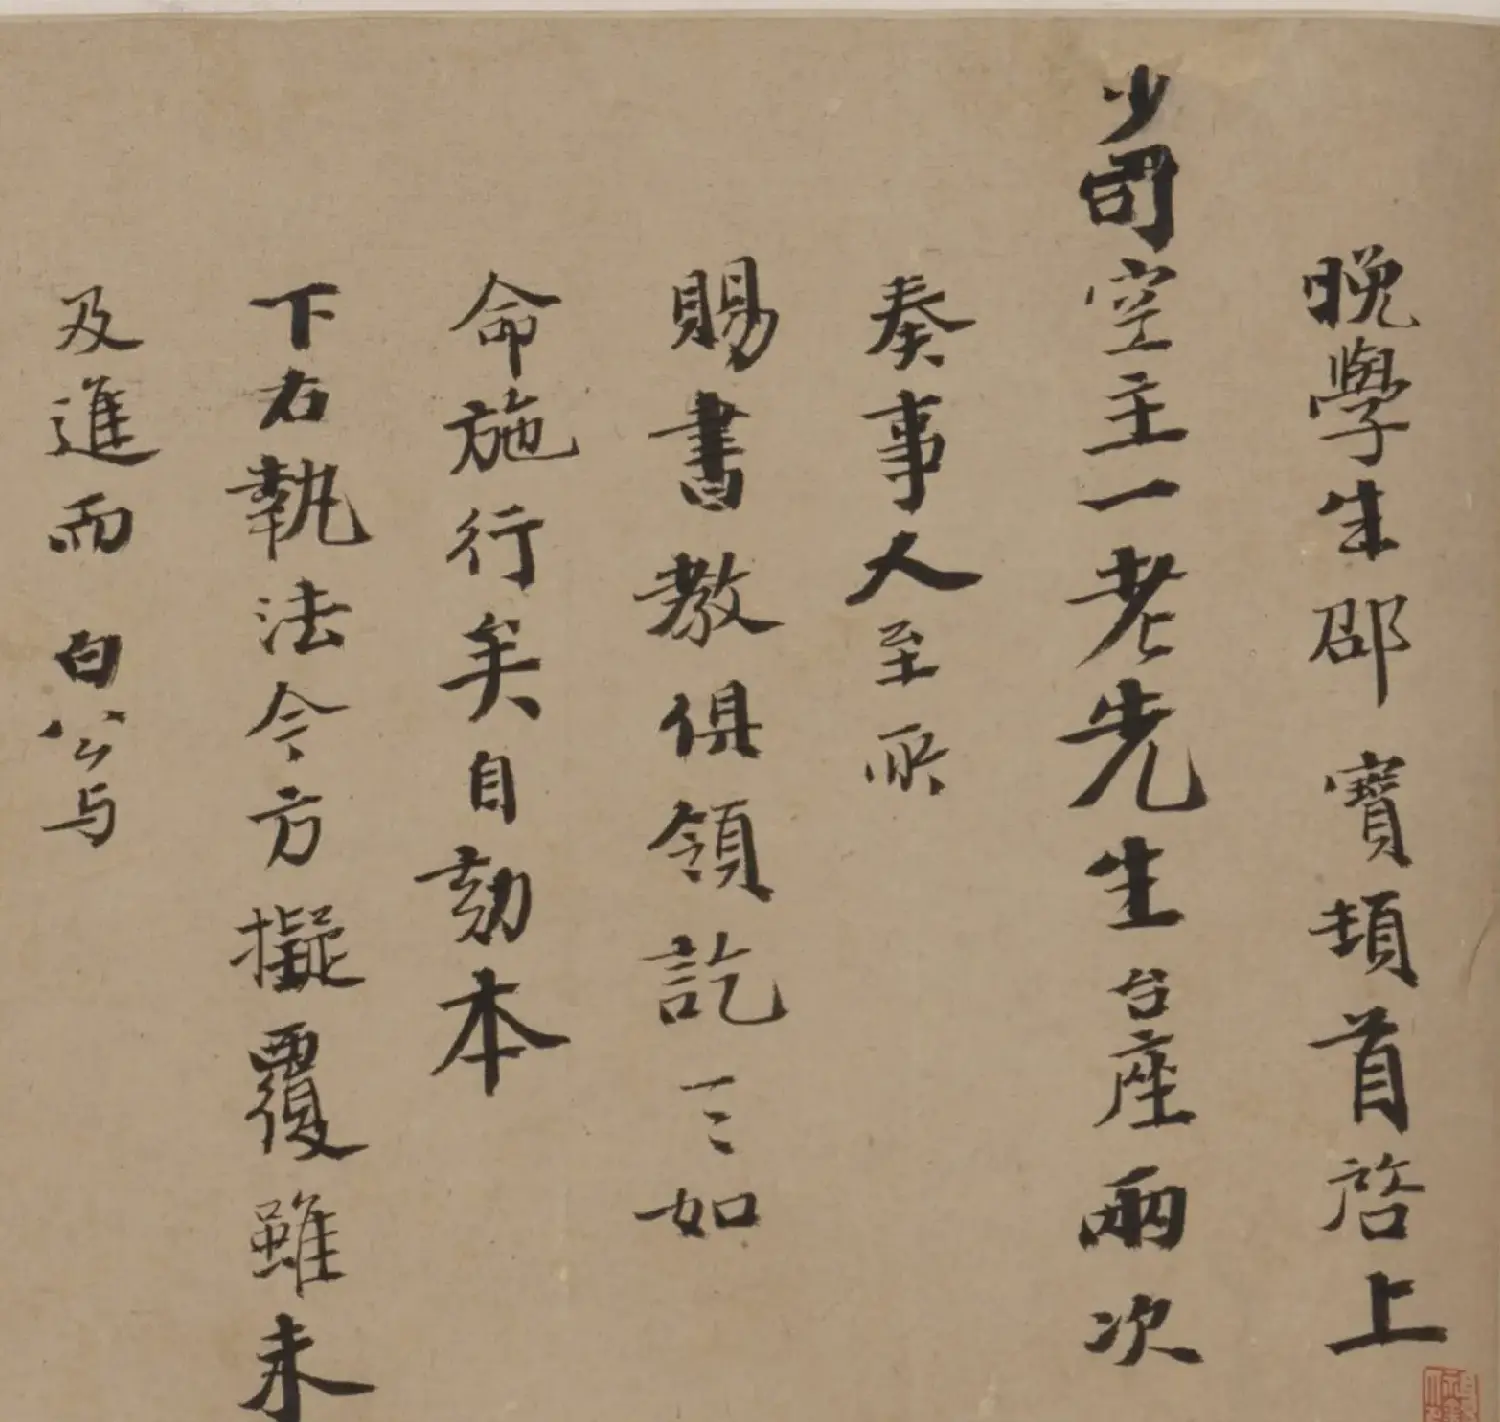 晚學生邵寳頓首啓上
少司空主一老先生台座兩次
奏事人至所
賜書教俱領訖一二如
命施行矣自劾本
下右執法令方擬覆雖未
及進而白公与